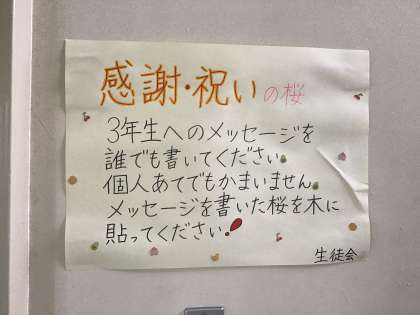 感謝・祝いの桜
3年生へのメッセージを
誰でも書いてください。
個人あてでもかまいません。
メッセージを書いた桜を木に
貼ってください!
生徒会